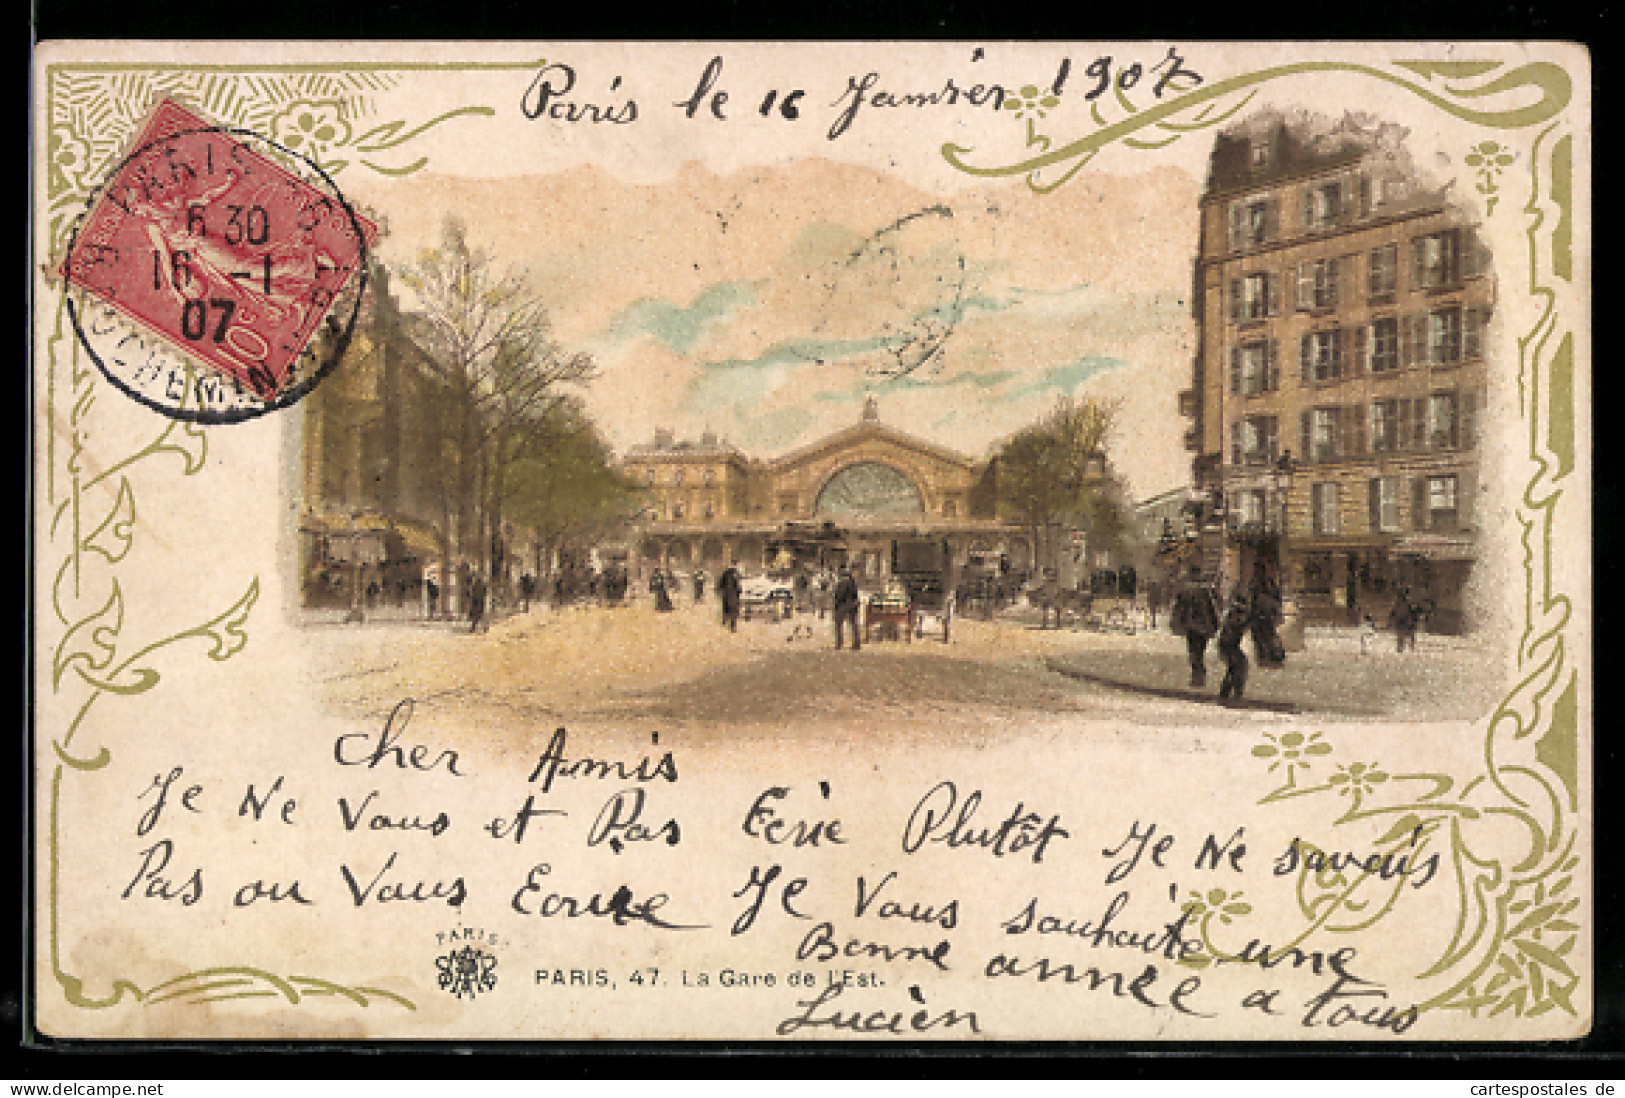 Paris le 16 Janvier 1907
PARIS
6 30
16 -1
07
10c
Cher Amis
Je Ne Vous et Pas Ecrie Plutôt Je Ne savais
Pas ou Vous Ecrire Je Vous souhaite une
Bonne année a tous
Lucien
PARIS.
PARIS, 47. La Gare de l'Est.
cartespostales de